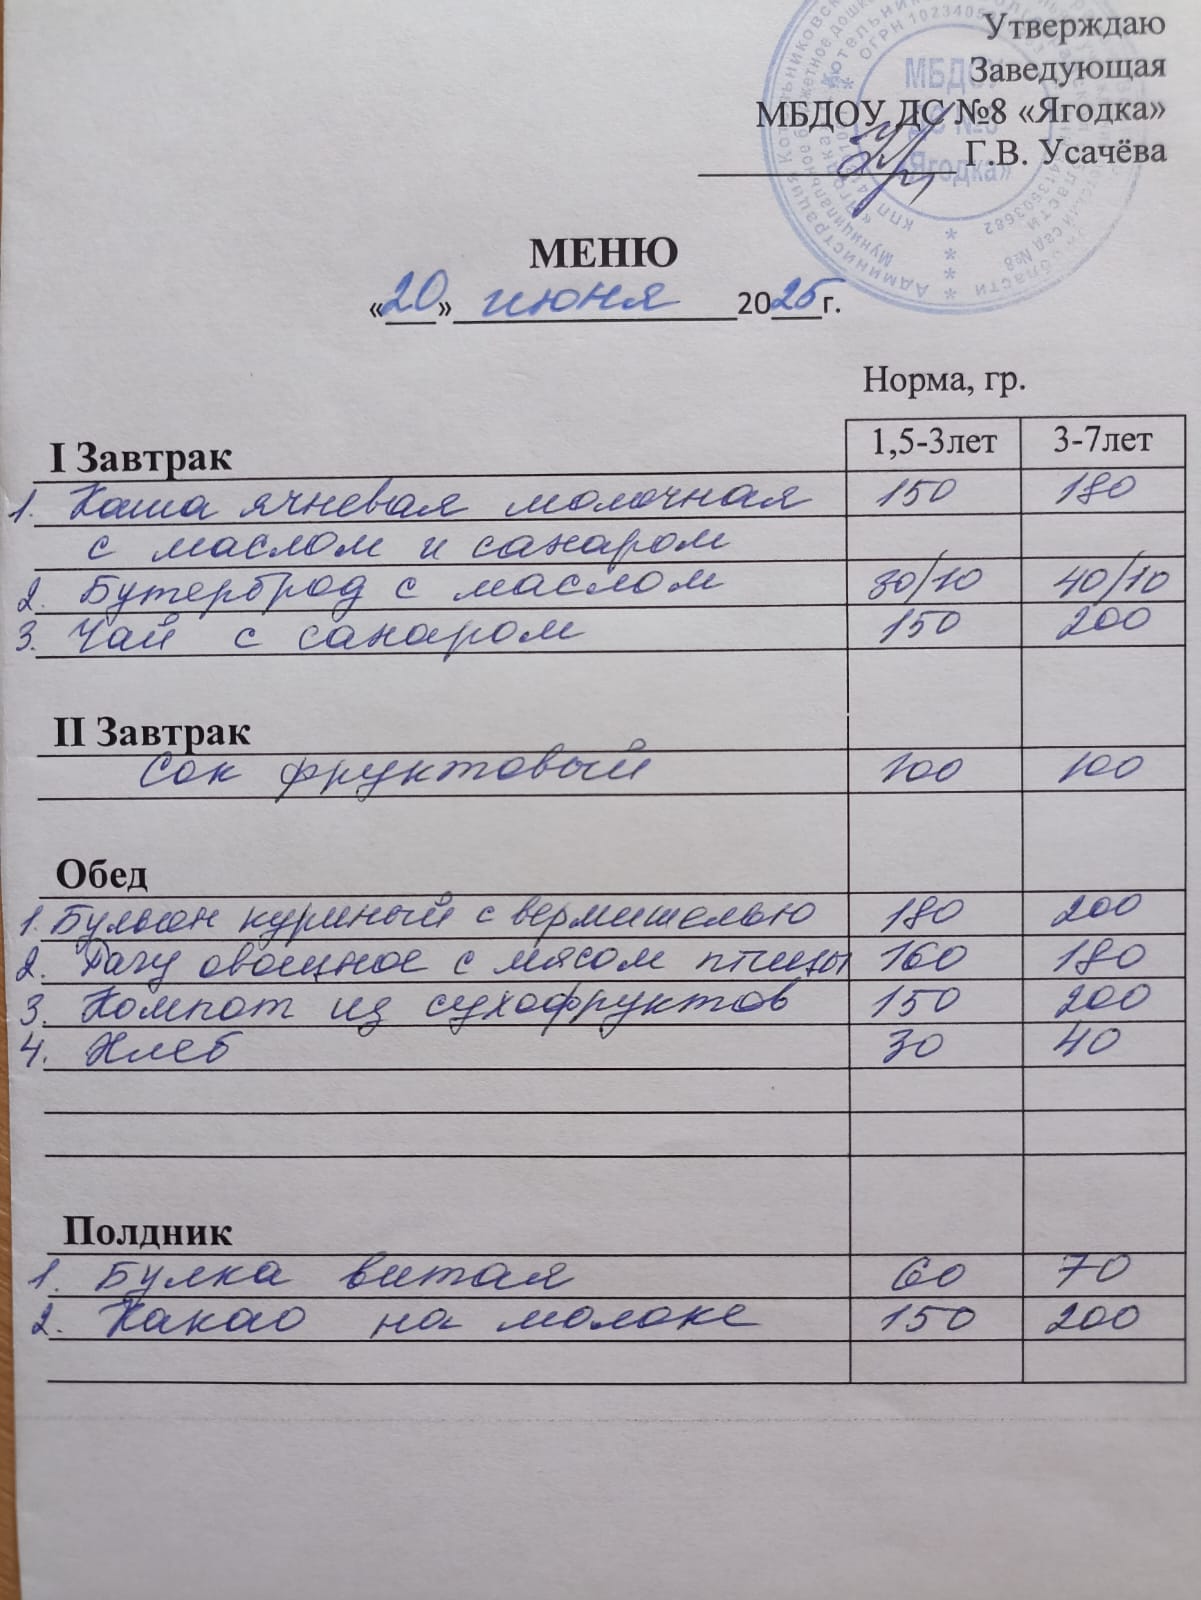 Утверждаю
Заведующая
МБДОУ ДС №8 «Ягодка»
Г.В. Усачёва
МБДОУ
ДС №8
«Ягодка»
МЕНЮ
«20» июня 2025г.
Норма, гр.
I Завтрак 1,5-3лет 3-7лет
1. Каша ячневая молочная 150 180
с маслом и сахаром
2. Бутерброд с маслом 30/10 40/10
3. Чай с сахаром 150 200
II Завтрак
Сок фруктовый 100 100
Обед
1. Бульон куриный с вермишелью 180 200
2. Рагу овощное с мясом птицы 160 180
3. Компот из сухофруктов 150 200
4. Хлеб 30 40
Полдник
1. Булка витая 60 70
2. Какао на молоке 150 200